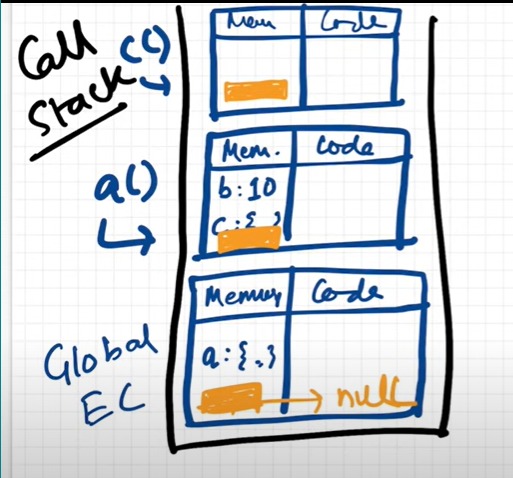 Call
Stack
c()
Mem
Code
a()
Mem.
Code
b:10
c:{ }
Global
EC
Memory
Code
a:{.}
null